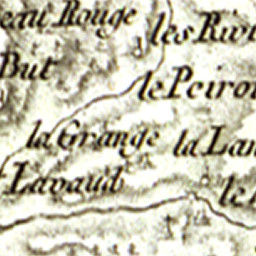 eau Rouge
les Rivi
But
le Peirou
la Grange
la Lan
Lavaud
le